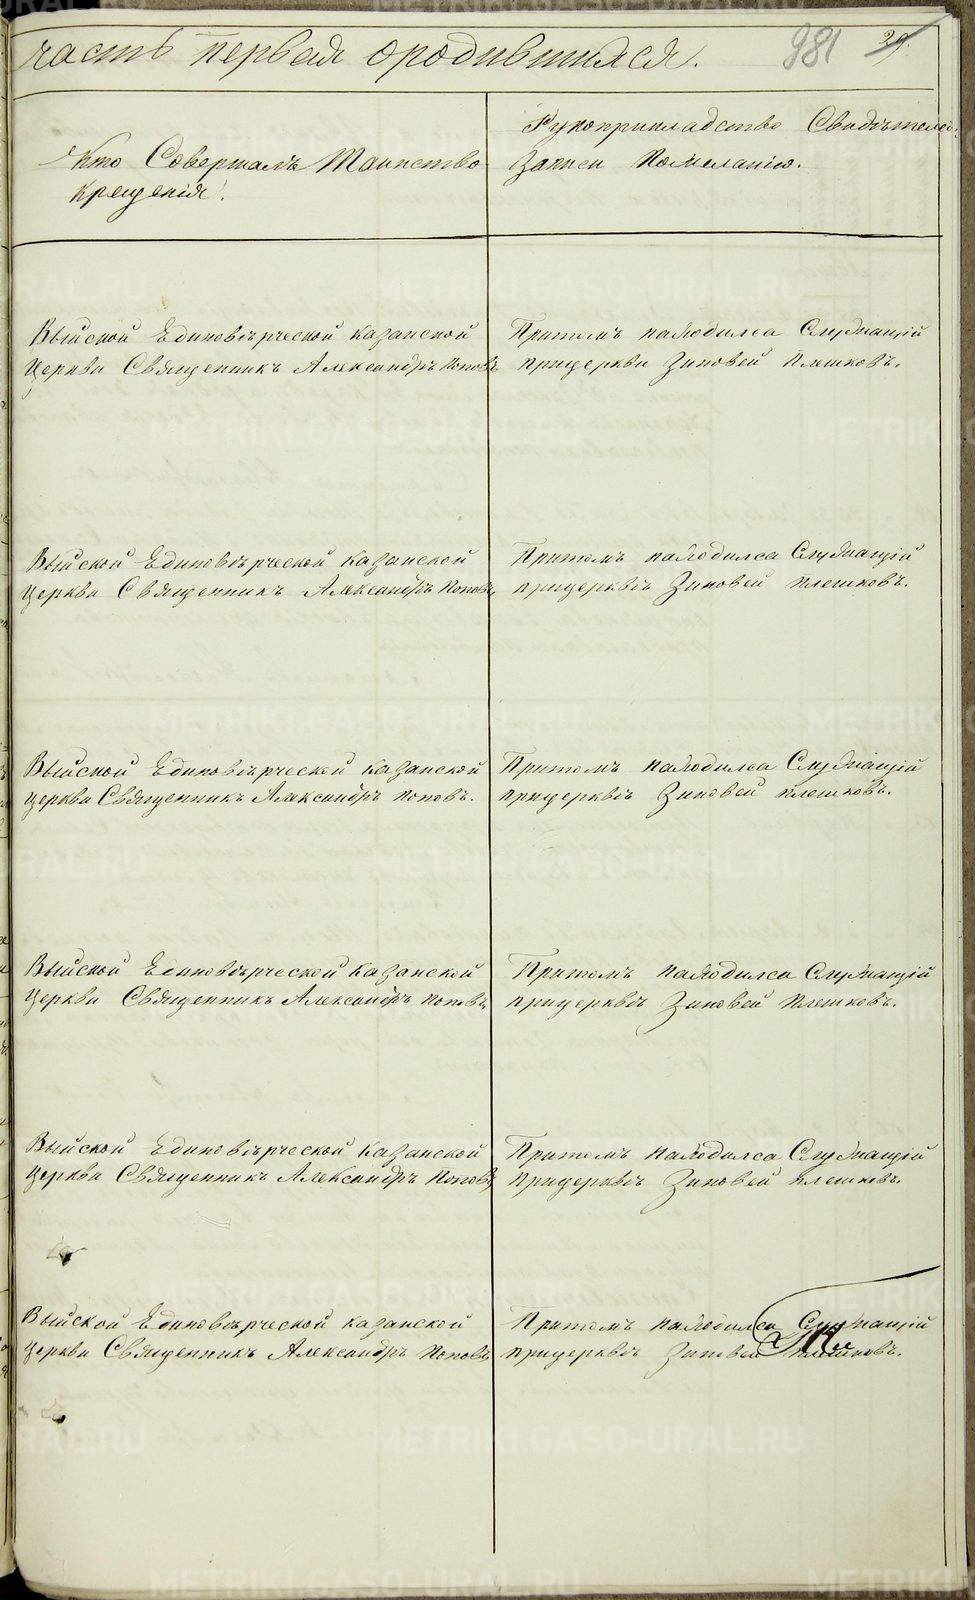 часть первая ородившихся.
981
29.
Кто Совершалъ Таинство
крещенія.
Рукоприкладство Свидѣтелей
Записи Пожеланію.
Выйской Единовѣрческой Казанской
Церкви Священникъ Александръ Поповъ
Притомъ находился Служащій
прицеркви Зиновей Плешковъ.
Выйской Единовѣрческой Казанской
Церкви Священникъ Александръ Поповъ,
Притомъ находился Служащій
прицерквѣ Зиновей Плешковъ.
Выйской Единовѣрческой Казанской
Церкви Священникъ Александръ Поповъ.
Притомъ находился Служащій
прицерквѣ Зиновей Плешковъ.
Выйской Единовѣрческой Казанской
Церкви Священникъ Александръ Поповъ
Притомъ находился Служащій
прицерквѣ Зиновей Плешковъ.
Выйской Единовѣрческой Казанской
Церкви Священникъ Александръ Поповъ,
Притомъ находился Служащій
прицерквѣ Зиновей Плешковъ.
Выйской Единовѣрческой Казанской
Церкви Священникъ Александръ Поповъ
Притомъ находился Служащій
прицерквѣ Зиновей Плешковъ.
METRIKI.GASO-URAL.RU